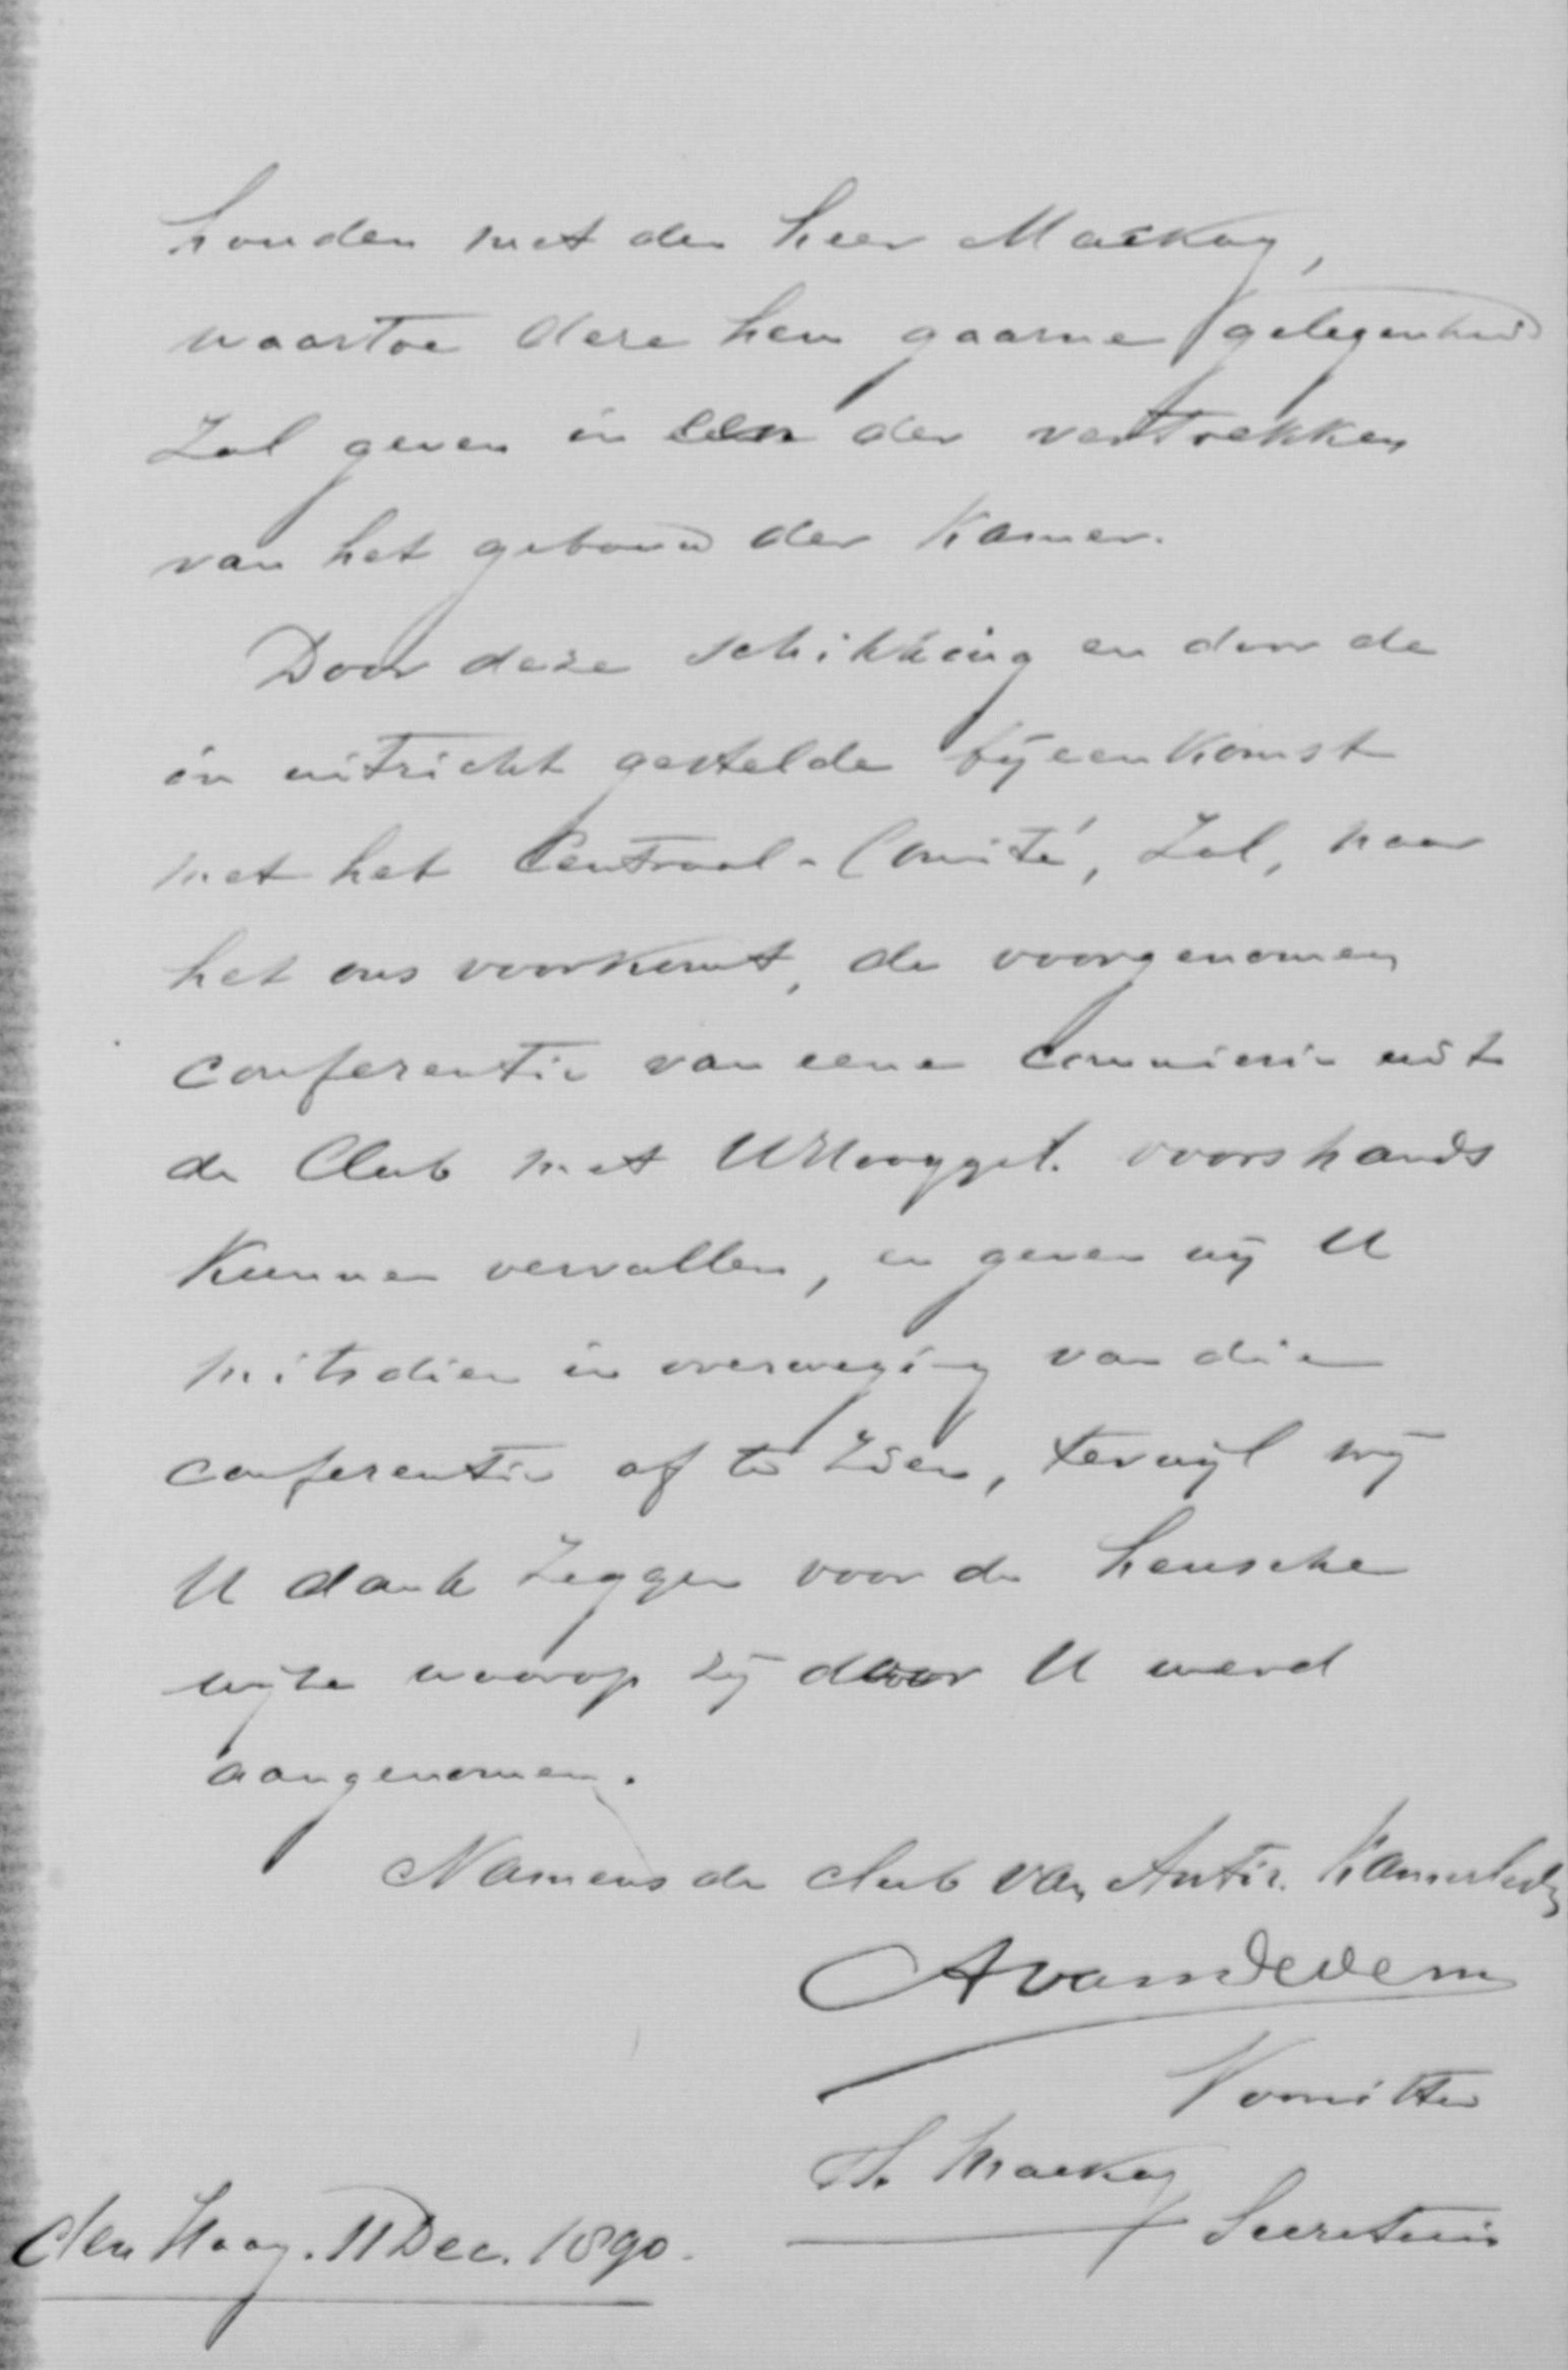 houden met den heer Mackay,
waartoe deze hem gaarne gelegenheid
zal geven in een der vertrekken
van het gebouw der Kamer.
Door deze schikking en door de
in uitzicht gestelde bijeenkomst
met het Centraal-Comité, zal, naar
het ons voorkomt, de voorgenomen
conferentie van eene commissie uit
de Club met UHoogget. voorshands
kunnen vervallen, en geven wij U
mitsdien in overweging van die
conferentie af te zien, terwijl wij
U dank zeggen voor de heusche
wijze waarop zij door U werd
aangenomen.
Namens de club van Antir. Kamerleden
AvanDedem
Voorzitter
Th. Mackay
Secretaris
den Haag. 11 Dec. 1890.